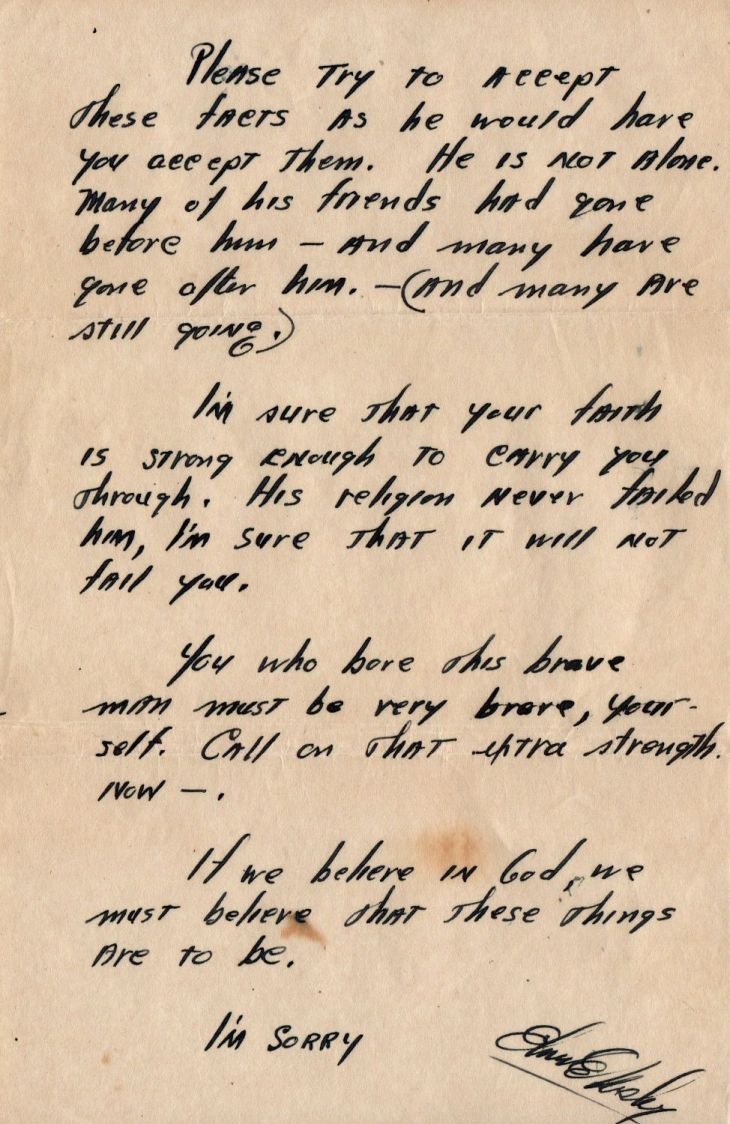 Please try to accept
these facts as he would have
you accept them. He is not alone.
Many of his friends had gone
before him — and many have
gone after him. — (And many are
still going.)
I'm sure that your faith
is strong enough to carry you
through. His religion never failed
him, I'm sure that it will not
fail you.
You who bore this brave
man must be very brave, your-
self. Call on that extra strength.
Now — .
If we believe in God, we
must believe that these things
are to be.
I'm sorry